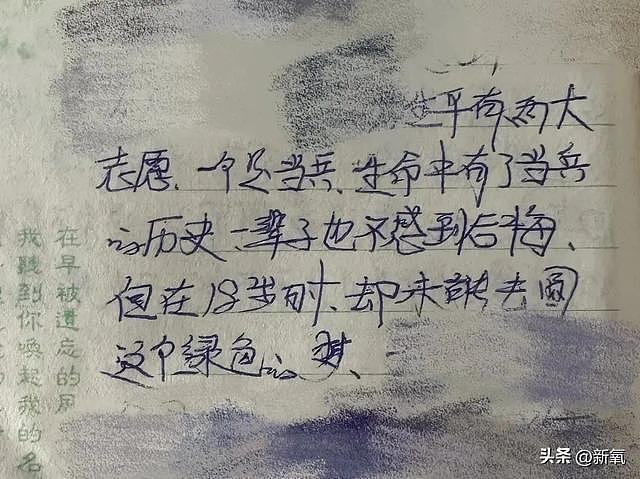 生平有两大
志愿、一个是当兵、生命中有了当兵
的历史一辈子也不感到后悔、
但在18岁时、却未能去圆
这个绿色的梦、
在早被遗忘的月
我听到你唤起我的名
头条 @新氧